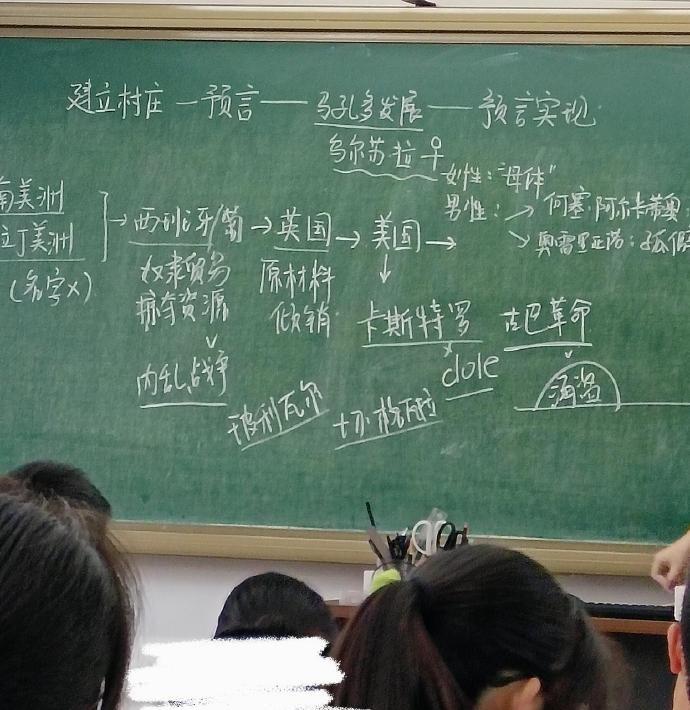 建立村庄—预言—马孔多发展—预言实现
乌尔苏拉♀
女性:"母体"
男性:→何塞·阿尔卡蒂奥
→奥雷里亚诺:孤
南美洲
拉丁美洲
(名字×)
→西班牙/葡→英国→美国→
奴隶贸易
掠夺资源
内乱,战争
原材料
倾销
卡斯特罗
古巴革命
dole
玻利瓦尔
切·格瓦拉